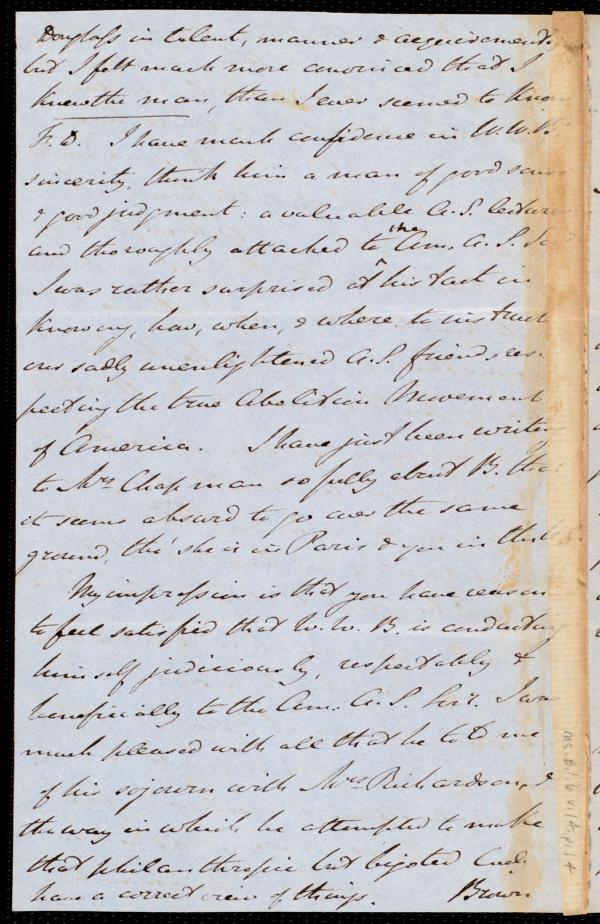 Douglass in talent, manner & acquirements,
but I felt much more convinced that I
knew the man, than I ever seemed to know
F.D. I have much confidence in W.W.B's
sincerity, think him a man of good sense
& good judgment: a valuable A.S. lecturer
and thoroughly attached to the Am. A.S. Soc.
I was rather surprised at his tact in
knowing, how, when, & where to instruct
our sadly unenlightened A.S. friends res-
pecting the true Abolition Movement
of America. I have just been writing
to Mrs Chapman so fully about B. that
it seems absurd to go over the same
ground, tho' she is in Paris & you in the
My impression is that you have reason
to feel satisfied that W.W.B. is conducting
himself judiciously, respectably &
beneficially to the Am. A.S. Soc. I was
much pleased with all that he told me
of his sojourn with Mrs Richardson, &
the way in which he attempted to make
that philanthropic but bigoted lady
have a correct view of things. Brown